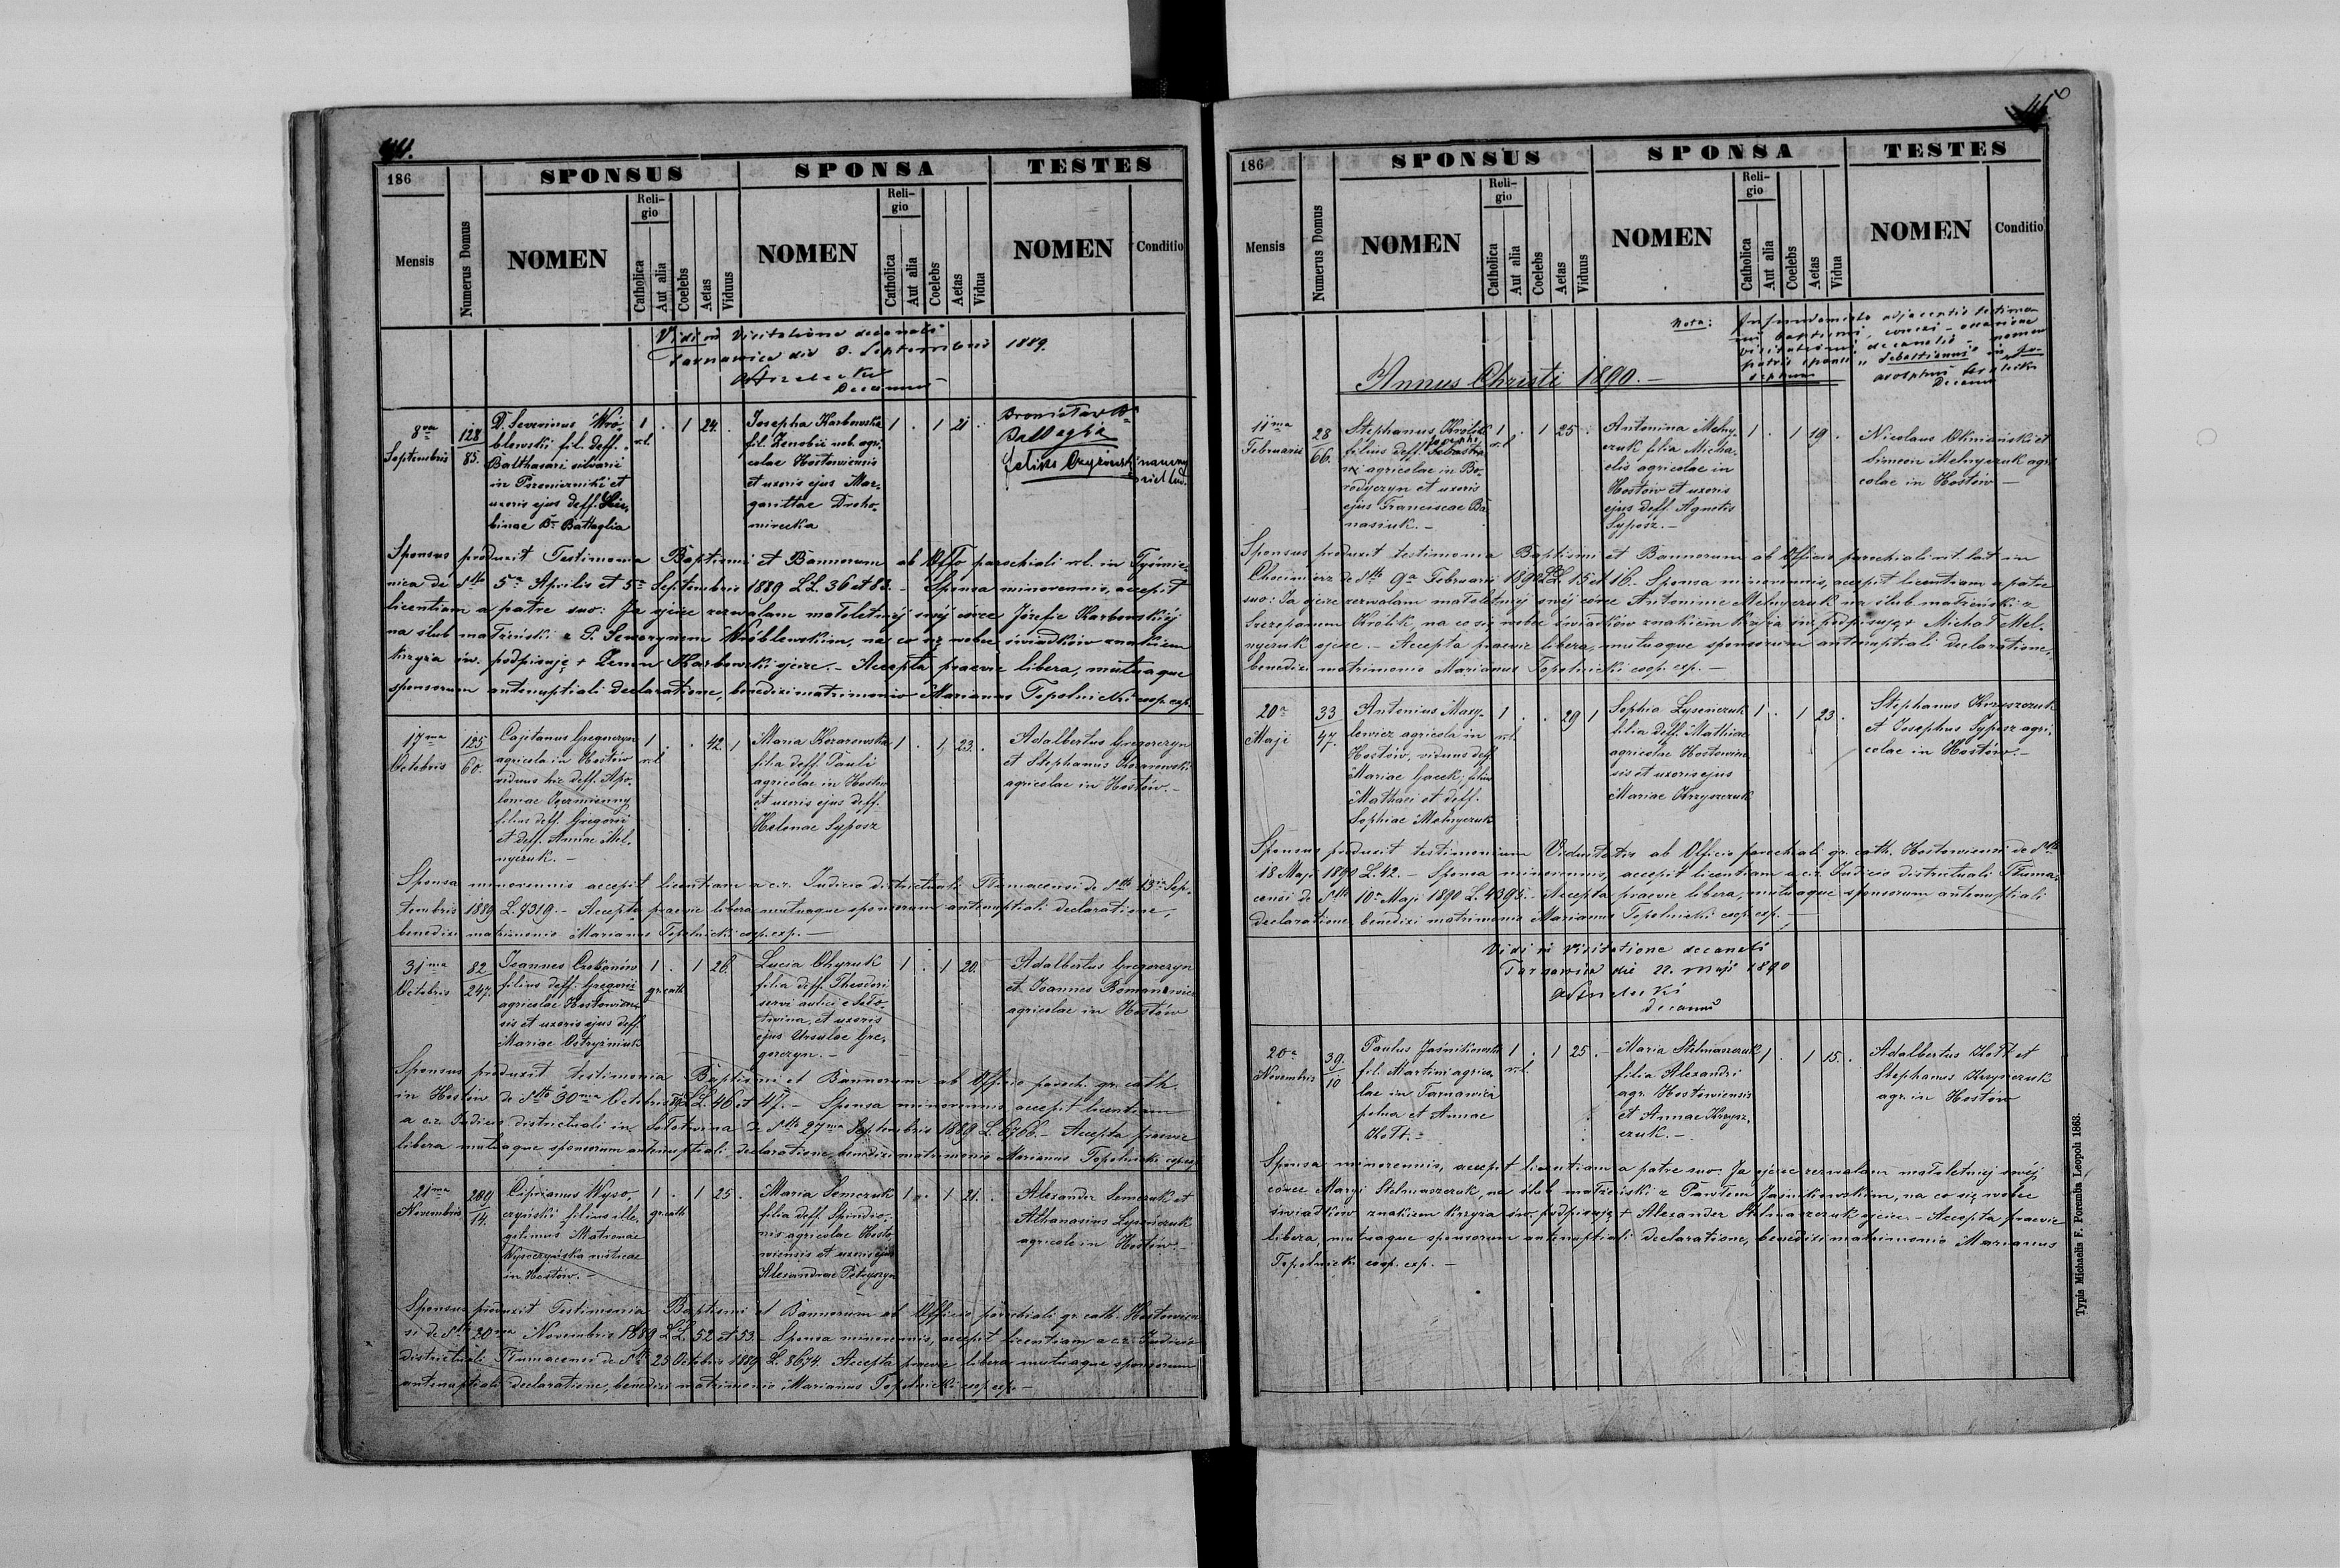 44.
186
SPONSUS
SPONSA
TESTES
Mensis
Numerus Domus
NOMEN
Reli-
gio
Catholica
Aut alia
Coelebs
Aetas
Viduus
NOMEN
Reli-
gio
Catholica
Aut alia
Coelebs
Aetas
Vidua
NOMEN
Conditio
Vidi in Visitatione decanali
Tarnawica die 3. Septembris 1889.
Decanus
8va
Septembris
128
85.
D. Severinus Wró-
blewski fil. deff.
Balthasari silvarii
in Przenieczniki et
uxoris ejus deff. Sa-
binae Br. Battaglia
1 r.l. . 1 24. .
Josepha Karbowska
fil. Zenobii nob. agri-
colae Hostowiensis
et uxoris ejus Mar-
garittae Droho-
mirecka
1 . 1 21 .
Bronisław Br.
Battaglia
Feliks
Sponsus produxit Testimonia Baptismi et Bannorum ab Offo parochiali r.l. in Tyśmie-
nica de dtto 5a Aprilis et 5a Septembris 1889 LL. 36 et 83. - Sponsa minorennis, accepit
licentiam a patre suo: Ja ojciec zezwalam małoletniej swej córce Józefie Karbowskiej
na ślub małżeński z P. Sewerynem Wróblewskim, na co się wobec świadków znakiem
krzyża św. podpisuję + Zenon Karbowski ojciec. - Accepta praevie libera, mutuaque
sponsorum antenuptiali declaratione, benedixi matrimonio Marianus Topolnicki coop. exp.
17ma
Octobris
125
60.
Cajetanus Gregorczyn
agricola in Hostów
viduus hic deff. Apo-
loniae Jezmienny
filius deff. Gregorii
et deff. Annae Mel-
nyczuk. -
1 r.l. . . 42. 1
Maria Kozarowska
filia deff. Pauli
agricolae in Hostów
et uxoris ejus deff.
Helenae Syposz
1 . 1 23. .
Adalbertus Gregorczyn
et Stephanus Kozarowski
agricolae in Hostów. -
Sponsa minorennis accepit licentiam a c.r. Judicio districtuali Tłumacensi de dtto 13a Sep-
tembris 1889 L. 7319. - Accepta praevie libera mutuaque sponsorum antenuptiali declaratione,
benedixi matrimonio Marianus Topolnicki coop. exp. -
31ma
Octobris
82
247.
Joannes Czekanów
filius deff. Gregorii
agricolae Hostowien-
sis et uxoris ejus deff.
Mariae Ostryżniuk
1 gr. cath . 1 26.
Lucia Chyruk
filia deff. Theodori
servi aulici e Soło-
twina, et uxoris
ejus Ursulae Gre-
gorczyn. -
1 . 1 20.
Adalbertus Gregorczyn
et Joannes Romanowicz
agricolae in Hostów
Sponsus produxit testimonia Baptismi et Bannorum ab Officio paroch. gr. cath.
in Hostów de dtto 30ma Octobris 889 LL. 46 et 47. - Sponsa minorennis accepit licentiam
a c.r. Judicio districtuali in Sołotwina de dtto 27ma Septembris 1889 L. 6766. - Accepta praevie
libera mutuaque sponsorum antenuptiali declaratione, benedixi matrimonio Marianus Topolnicki coop. exp.
21ma
Novembris
209
14.
Ciprianus Wyso-
czyński filius ille-
gitimus Matronae
Wysoczyńska
in Hostów. -
1 gr. cath . 1 25 .
Maria Semczuk
filia deff. Spiridio-
nis agricolae Hosto-
wiensis et uxoris ejus
Alexandrae Petryszyn
1 . 1 21. .
Alexander Semczuk et
Athanasius Łysenczuk
agricolae in Hostów. -
Sponsus produxit Testimonia Baptismi et Bannorum ab Officio parochiali gr. cath. Hostowien-
si de dtto 20ma Novembris 1889 LL. 52 et 53. - Sponsa minorennis, accepit licentiam a c.r. Judicio
districtuali Tłumacensi de dtto 25 Octobris 1889 L. 8674. Accepta praevie libera mutuaque sponsorum
antenuptiali declaratione, benedixi matrimonio Marianus Topolnicki coop. exp. -
186
SPONSUS
SPONSA
TESTES
Mensis
Numerus Domus
NOMEN
Reli-
gio
Catholica
Aut alia
Coelebs
Aetas
Viduus
NOMEN
Reli-
gio
Catholica
Aut alia
Coelebs
Aetas
Vidua
NOMEN
Conditio
Nota: In fundamento adjacentis testimo-
nii baptismi, correxi - occasione
visitationis decanalis - nomen
patris sponsi "Sebastianus" in "Jo-
sephum"
Decanus
Annus Christi 1890. -
11ma
Februarii
28
66.
Stephanus Królik
filius deff. Sebastia-
Josephi
ni agricolae in Bo-
rodyczyn et uxoris
ejus Franciscae Ba-
nasiuk. -
1 r.l . 1 25 .
Antonina Melny-
czuk filia Micha-
elis agricolae in
Hostów et uxoris
ejus deff. Agnetis
Syposz. -
1 . 1 19 .
Nicolaus Okniański et
Simeon Melnyczuk agri-
colae in Hostów -
Sponsus produxit testimonia Baptismi et Bannorum ab Officio parochiali rit. lat. in
Chocimierz de dtto 9a Februarii 1890 LL. 15 et 16. - Sponsa minorennis, accepit licentiam a patre
suo: Ja ojciec zezwalam małoletniej swej córce Antoninie Melnyczuk na ślub małżeński z
Szczepanem Królik, na co się wobec świadków znakiem krzyża św. podpisuję + Michał Mel-
nyczuk ojciec. - Accepta praevie libera, mutuaque sponsorum antenuptiali declaratione,
benedixi matrimonio Marianus Topolnicki coop. exp. -
20a
Maji
33
47.
Antonius Mazy-
lewicz agricola in
Hostów, viduus deff.
Mariae Gacek; filius
Mathaei et deff.
Sophiae Melnyczuk
1 r.l. . . 29 1
Sophia Łysenczuk
filia deff. Mathiae
agricolae Hostowien-
sis et uxoris ejus
Mariae Krzyszczuk
1 . 1 23 .
Stephanus Krzyszczuk
et Josephus Syposz agri-
colae in Hostów. -
Sponsus produxit testimonium Viduitatis ab Officio parochiali gr. cath. Hostowiensi de dtto
18 Maji 1890 L. 42. - Sponsa minorennis, accepit licentiam a c.r. Judicio districtuali Tłuma-
censi de dtto 10a Maji 1890 L. 4395. - Accepta praevie libera, mutuaque sponsorum antenuptiali
declaratione, benedixi matrimonio Marianus Topolnicki coop. exp. -
Vidi in Visitatione decanali
Tarnawica die 22. Maji 1890
decanus
20a
Novembris
39.
10
Paulus Jaśnikowski
fil. Martini agrico-
lae in Tarnawica
polna et Annae
Kott. -
1 r.l. . 1 25 .
Maria Stelmaszczuk
filia Alexandri
agr. Hostowiensis
et Annae Krzysz-
czuk. -
1 . 1 15. .
Adalbertus Kott et
Stephanus Krzyszczuk
agr. in Hostów
Sponsa minorennis, accepit licentiam a patre suo: Ja ojciec zezwalam małoletniej swéj
córce Maryi Stelmaszczuk, na ślub małżeński z Pawłem Jaśnikowskim, na co się wobec
świadków znakiem krzyża św. podpisuję + Alexander Stelmaszczuk ojciec. - Accepta praevie
libera, mutuaque sponsorum antenuptiali declaratione, benedixi matrimonio Marianus
Topolnicki coop. exp. -
Typis Michaelis F. Poremba Leopoli 1863.